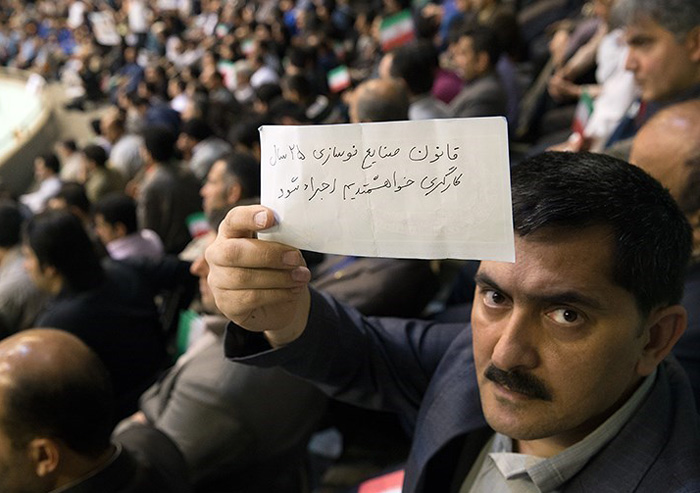 قانون صنایع نوسازی ۲۵ سال
کارگری خواهشمندیم اجراء شود